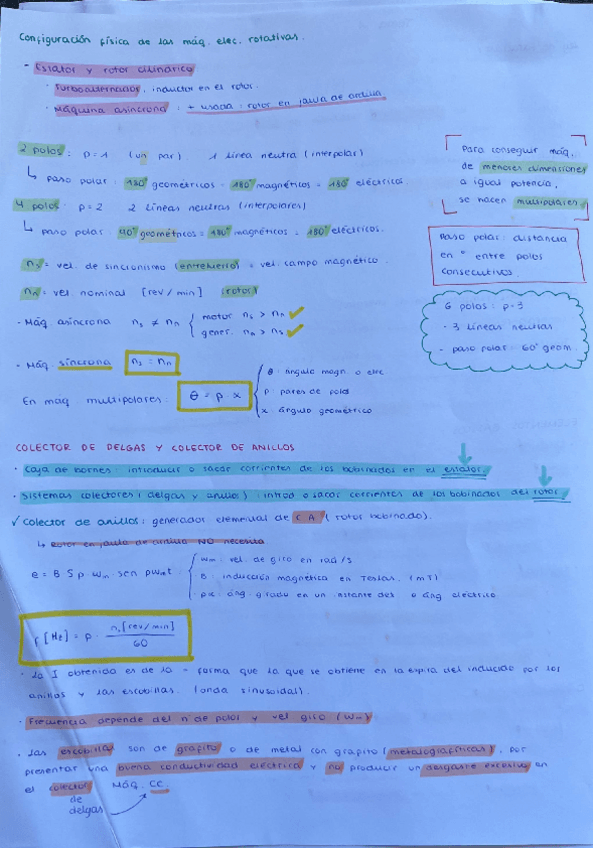 Configuración física de las máq. elec. rotativas.
- Estator y rotor cilíndrico
· Turboalternador, inductor en el rotor.
· Máquina asíncrona: + usada: rotor en jaula de ardilla
2 polos: p=1 (un par) 1 línea neutra (interpolar)
↳ paso polar: 180° geométricos = 180° magnéticos = 180° eléctricos.
4 polos: p=2 2 líneas neutras (interpolares)
↳ paso polar: 90° geométricos = 180° magnéticos = 180° eléctricos.
ns = vel. de sincronismo (entrehierro) = vel. campo magnético.
nn = vel. nominal [rev/min] (rotor)
- Máq. asíncrona ns ≠ nn { motor ns > nn ✓
gener. nn > ns ✓
- Máq. síncrona ns = nn
En maq. multipolares: θ = p · α
θ: ángulo magn. o elec
p: pares de polos
α: ángulo geométrico
Para conseguir máq.
de menores dimensiones
a igual potencia,
se hacen multipolares
Paso polar: distancia
en ° entre polos
consecutivos.
6 polos: p=3
· 3 líneas neutras
- paso polar: 60° geom.
COLECTOR DE DELGAS Y COLECTOR DE ANILLOS
· Caja de bornes: introducir o sacar corrientes de los bobinados en el estator.
· Sistemas colectores (delgas y anillos): introd o sacar corrientes de los bobinados del rotor.
✓ Colector de anillos: generador elemental de C.A (rotor bobinado).
↳ Rotor en jaula de ardilla NO necesita
e = B·S·p·wm·sen pwmt
wm: vel. de giro en rad/s
B: inducción magnética en Teslas. (mT)
pα: áng. girado en un instante des o áng eléctrico
f [Hz] = p · n[rev/min] / 60
· la I obtenida es de la = forma que la que se obtiene en la espira del inducido por los
anillos y las escobillas. (onda sinusoidal).
- Frecuencia depende del n de polos y vel giro (wm)
· Las escobillas son de grafito o de metal con grafito (metalografíticas), por
presentar una buena conductividad eléctrica y no producir un desgaste excesivo en
el colector Máq. CC.
de
delgas